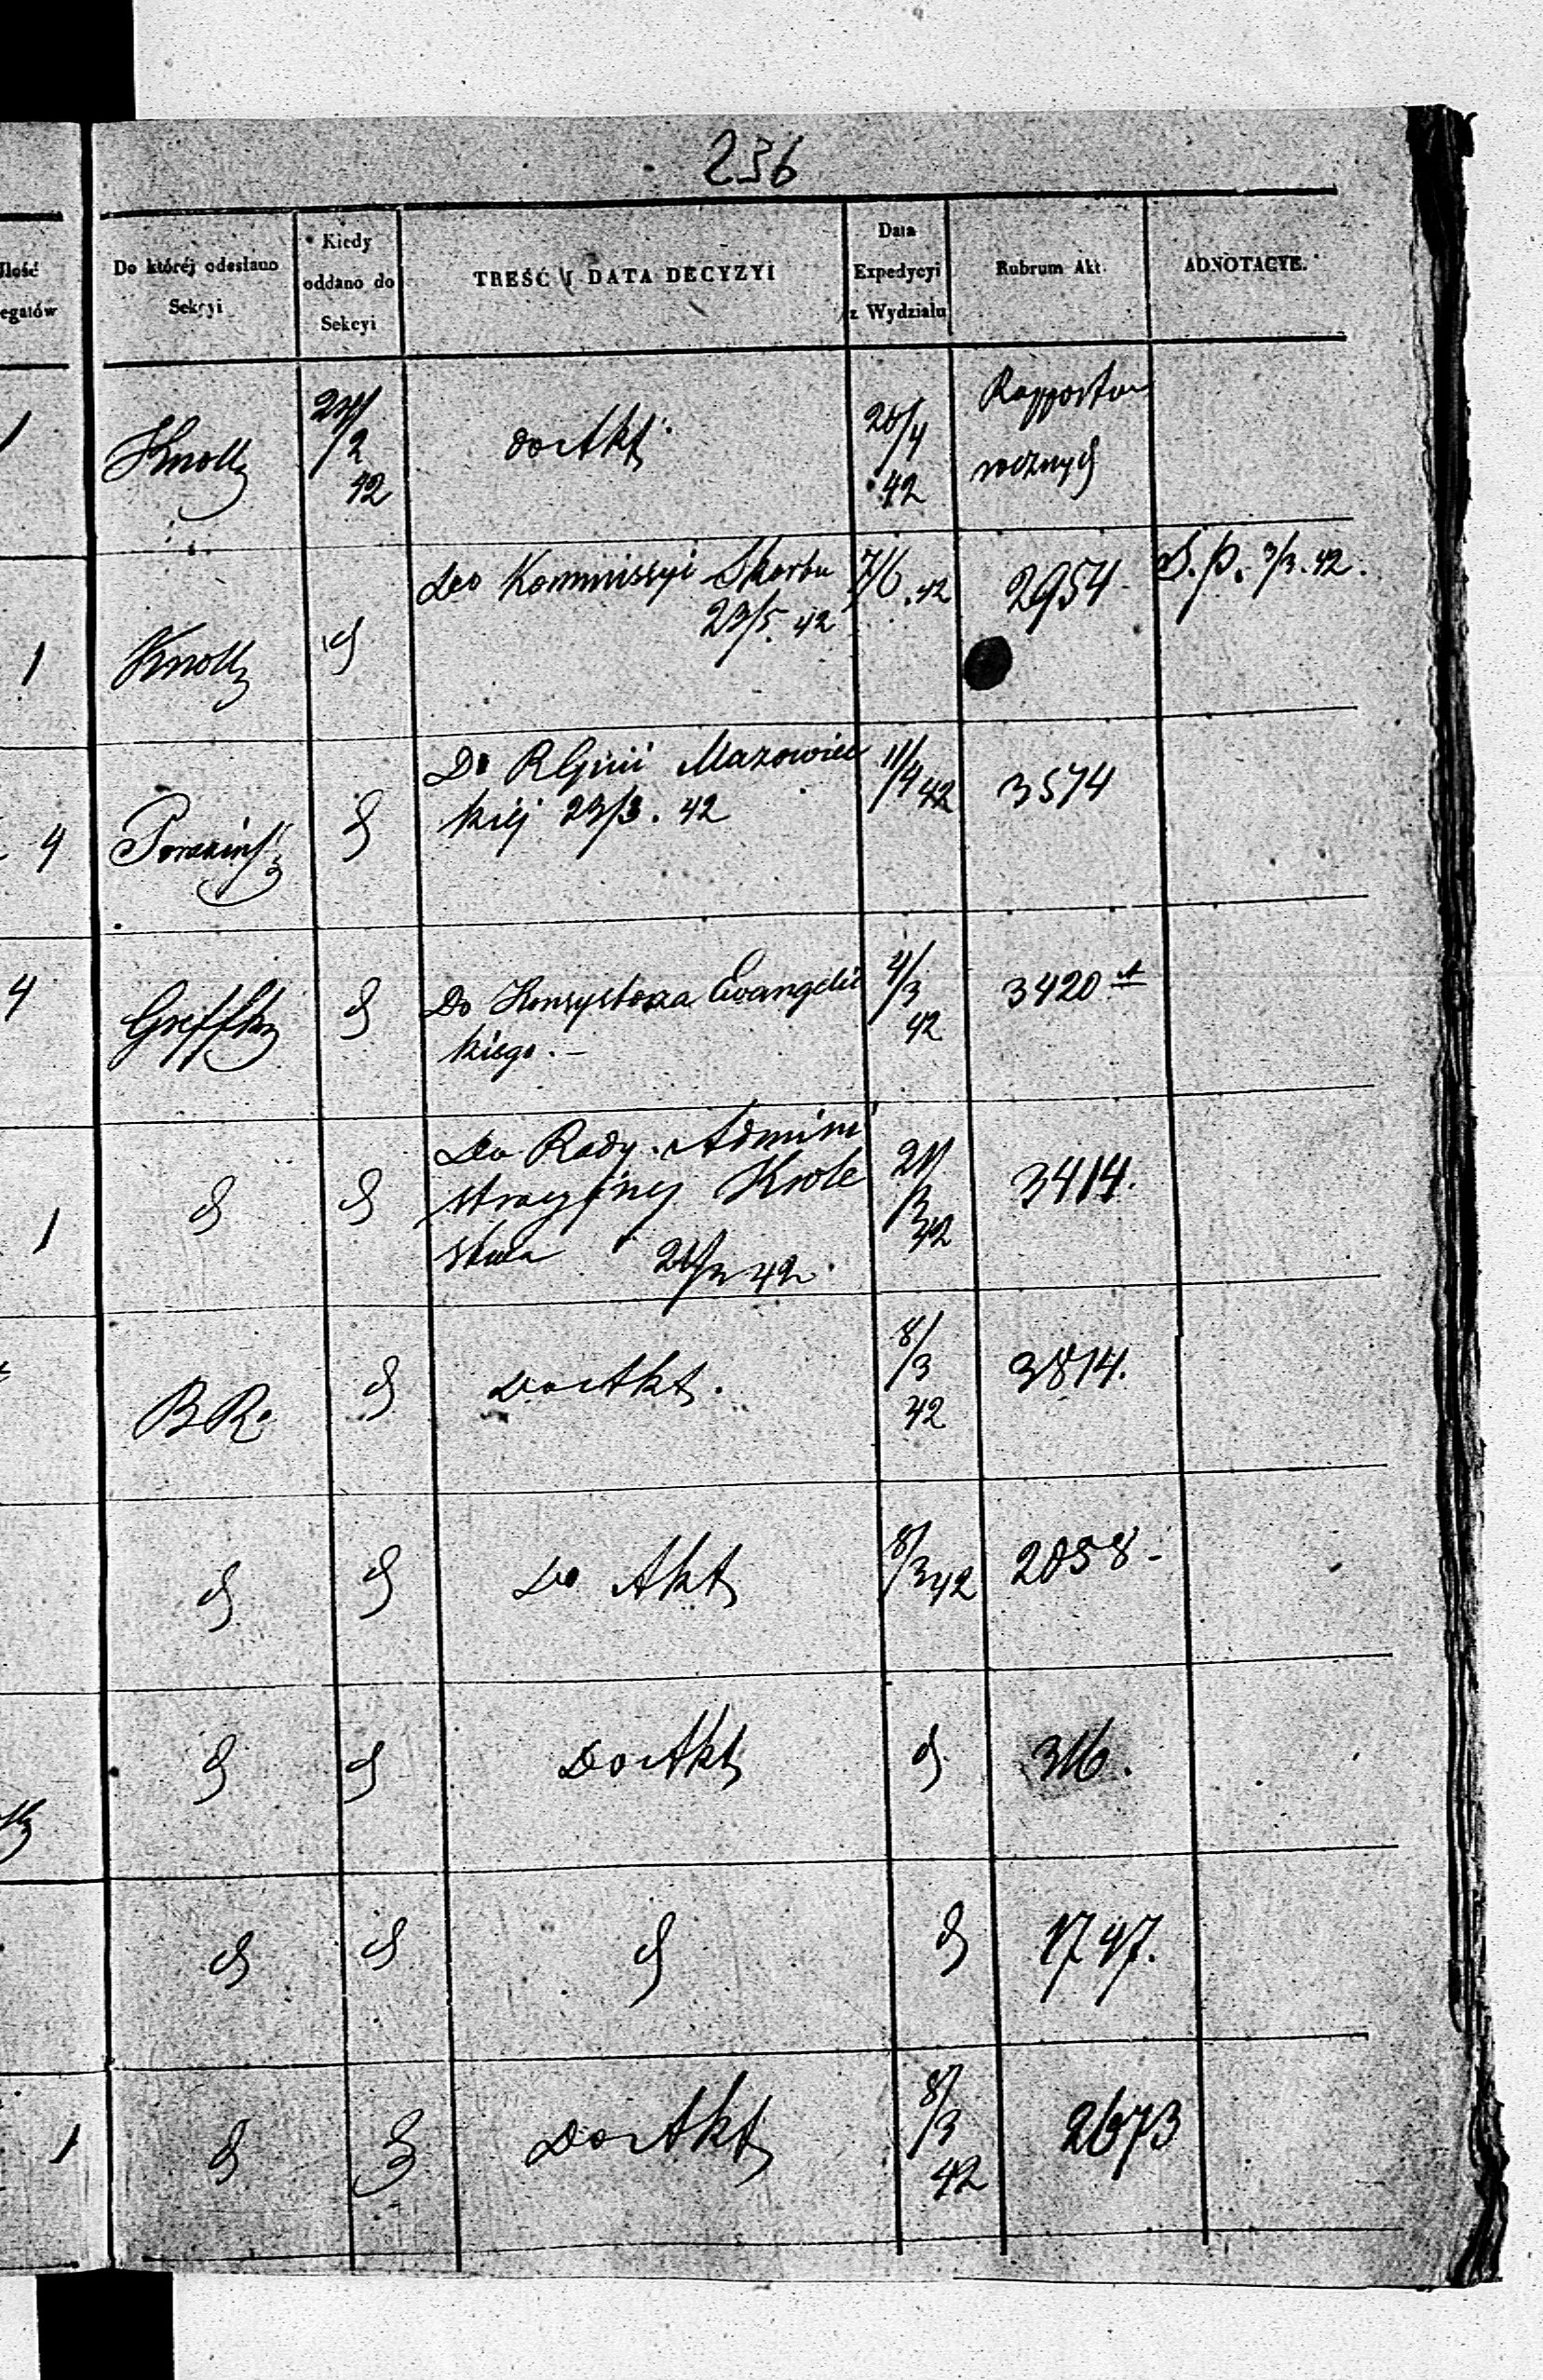 236
Ilość
egatów
Do któréj odesłano
Sekcyi
Kiedy
oddano do
Sekcyi
TREŚĆ I DATA DECYZYI
Data
Expedycyi
z Wydziału
Rubrum Akt.
ADNOTACYE.
1
Knoll
2
42
do Akt
20/4
42
Rapportow
rocznych
1
Knoll
d
Do Kommissyi Skarbu
23/5. 42
7/6. 42
2954
D. p. 42.
4
d
Do Rljnii Mazowiec
kiéj 23/3. 42
11/4 42
3574
4
d
Do Konsystorza Ewangelic
kiego. –
4/3
42
3420
1
d
d
Do Rady Admini
stracyjnej Krole
stwa 42
21/3
42
3414.
B R.
d
Do Akt.
8/3
42
3814.
d
d
Do Akt
8/3 42
2058-
d
d
Do Akt
d
316.
d
d
d
d
1747.
1
d
d
Do Akt
8/3
42
2673